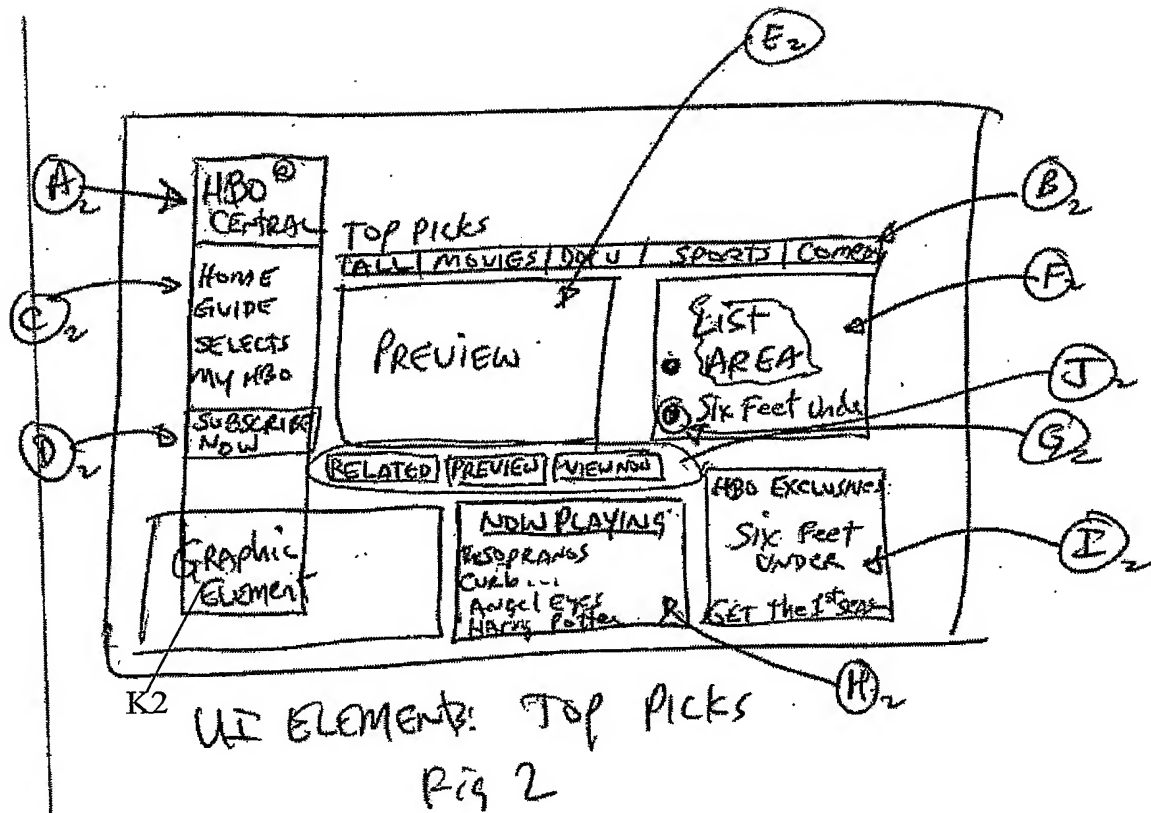 E2
A2
HBO
CENTRAL
B2
TOP PICKS
ALL | MOVIES | DOCU | SPORTS | COMEDY
C2
HOME
GUIDE
SELECTS
MY HBO
F2
PREVIEW
LIST
AREA
Six Feet Unde
J2
D2
SUBSCRIBE
NOW
G2
RELATED PREVIEW VIEW NOW
HBO EXCLUSIVES:
Six Feet
UNDER
GET the 1st SEAS
I2
NOW PLAYING
CURB...
ANGEL EYES
HARRY Potter
GRAPHIC
ELEMENT
K2
H2
UI ELEMENTS: TOP PICKS
Fig 2